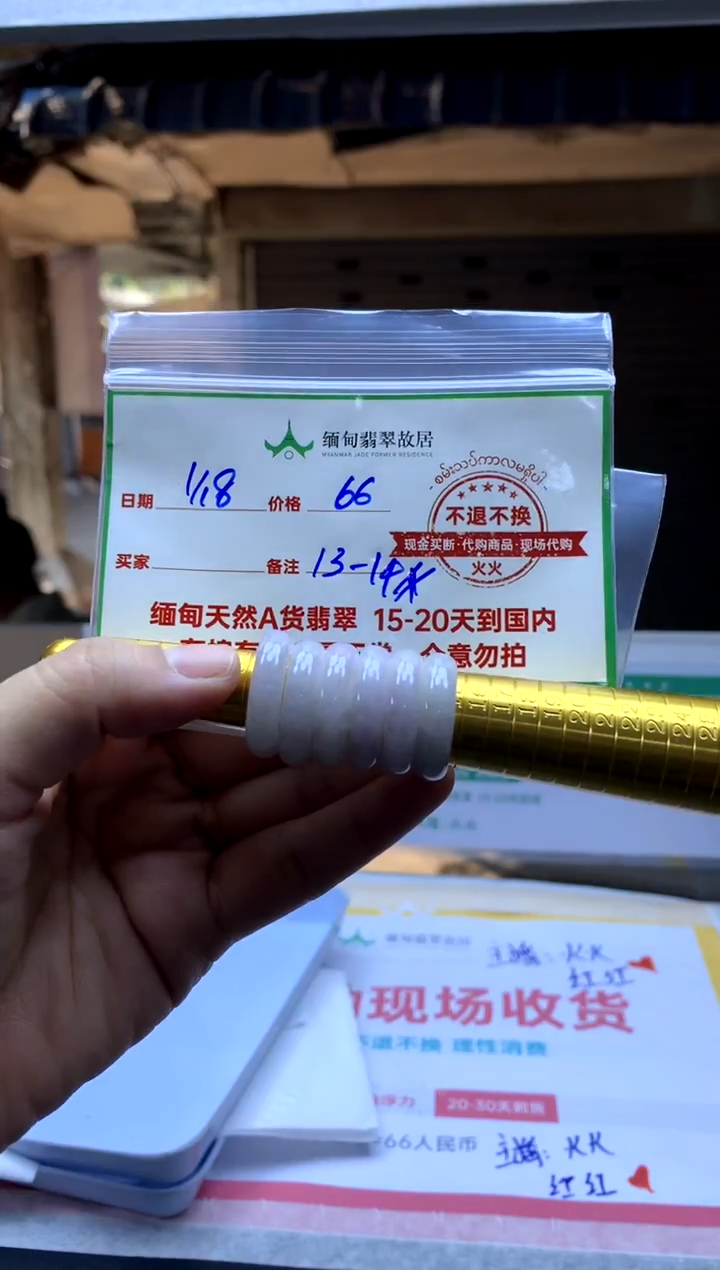 缅甸翡翠故居
MYANMAR JADE FORMER RESIDENCE
စမ်းသပ်ကာလမရှိပါ
日期 1/18 价格 66
不退不换
现金买断·代购商品·现场代购
买家 备注 13-14
火火
缅甸天然A货翡翠 15-20天到国内
介意勿拍
20 21 22 23 24 25
主播：火火
红红
现场收货
不退不换 理性消费
20-30天到货
66人民币
主播：火火
红红